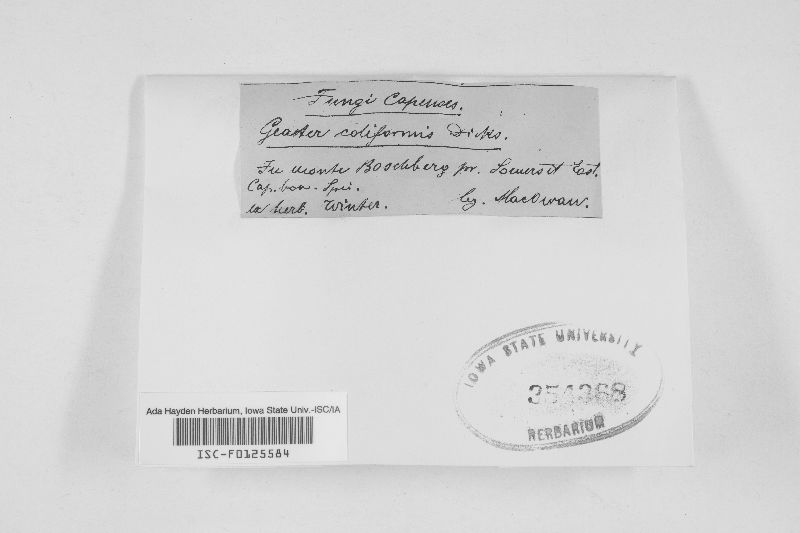 Fungi Capenses.
Geaster coliformis Dicks.
In monte Boschberg pr. Somerset East.
Cap. bon. Spei.
ex herb. Winter. leg. MacOwan.
IOWA STATE UNIVERSITY
354368
HERBARIUM
Ada Hayden Herbarium, Iowa State Univ.-ISC/IA
ISC-F0125584